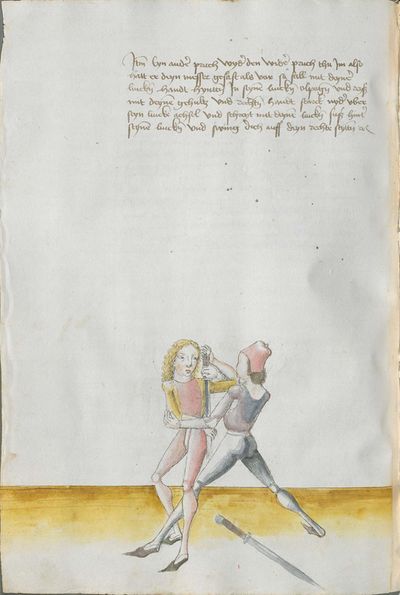 Item Eyn ander pruch wyder den wider pruch thu Im also
hatt er deyn messer gefast als var so fall mit deyner
lincken handt hynden In seynen lincken elpogen und reiß
mit deynem gehultz und rechten handt starck nyder uber
seyn lincke achsel und schreyt mit deynem lincken fuß hinter
seynen lincken und swing dich auff deyn rechte seytten